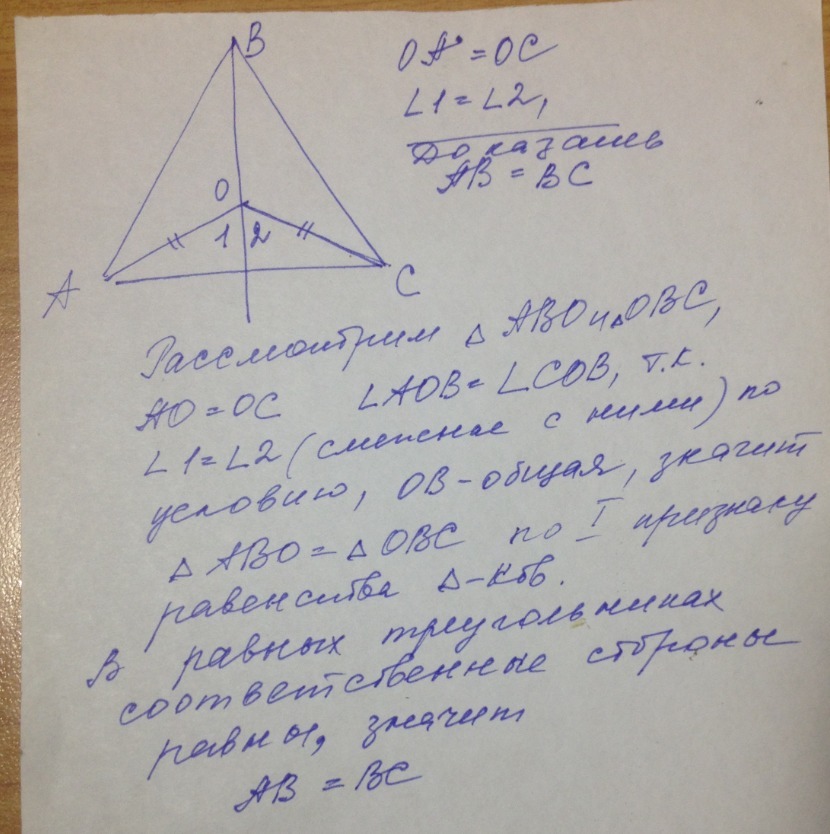 B
OA = OC
∠1 = ∠2,
Доказать
AB = BC
O
1 2
A
C
Рассмотрим △ ABO и △OBC,
AO = OC ∠AOB = ∠COB, т.к.
∠1 = ∠2 (смежные с ними) по
условию, OB - общая, значит
△ ABO = △ OBC по I признаку
равенства △-ков.
В равных треугольниках
соответственные стороны
равны, значит
AB = BC